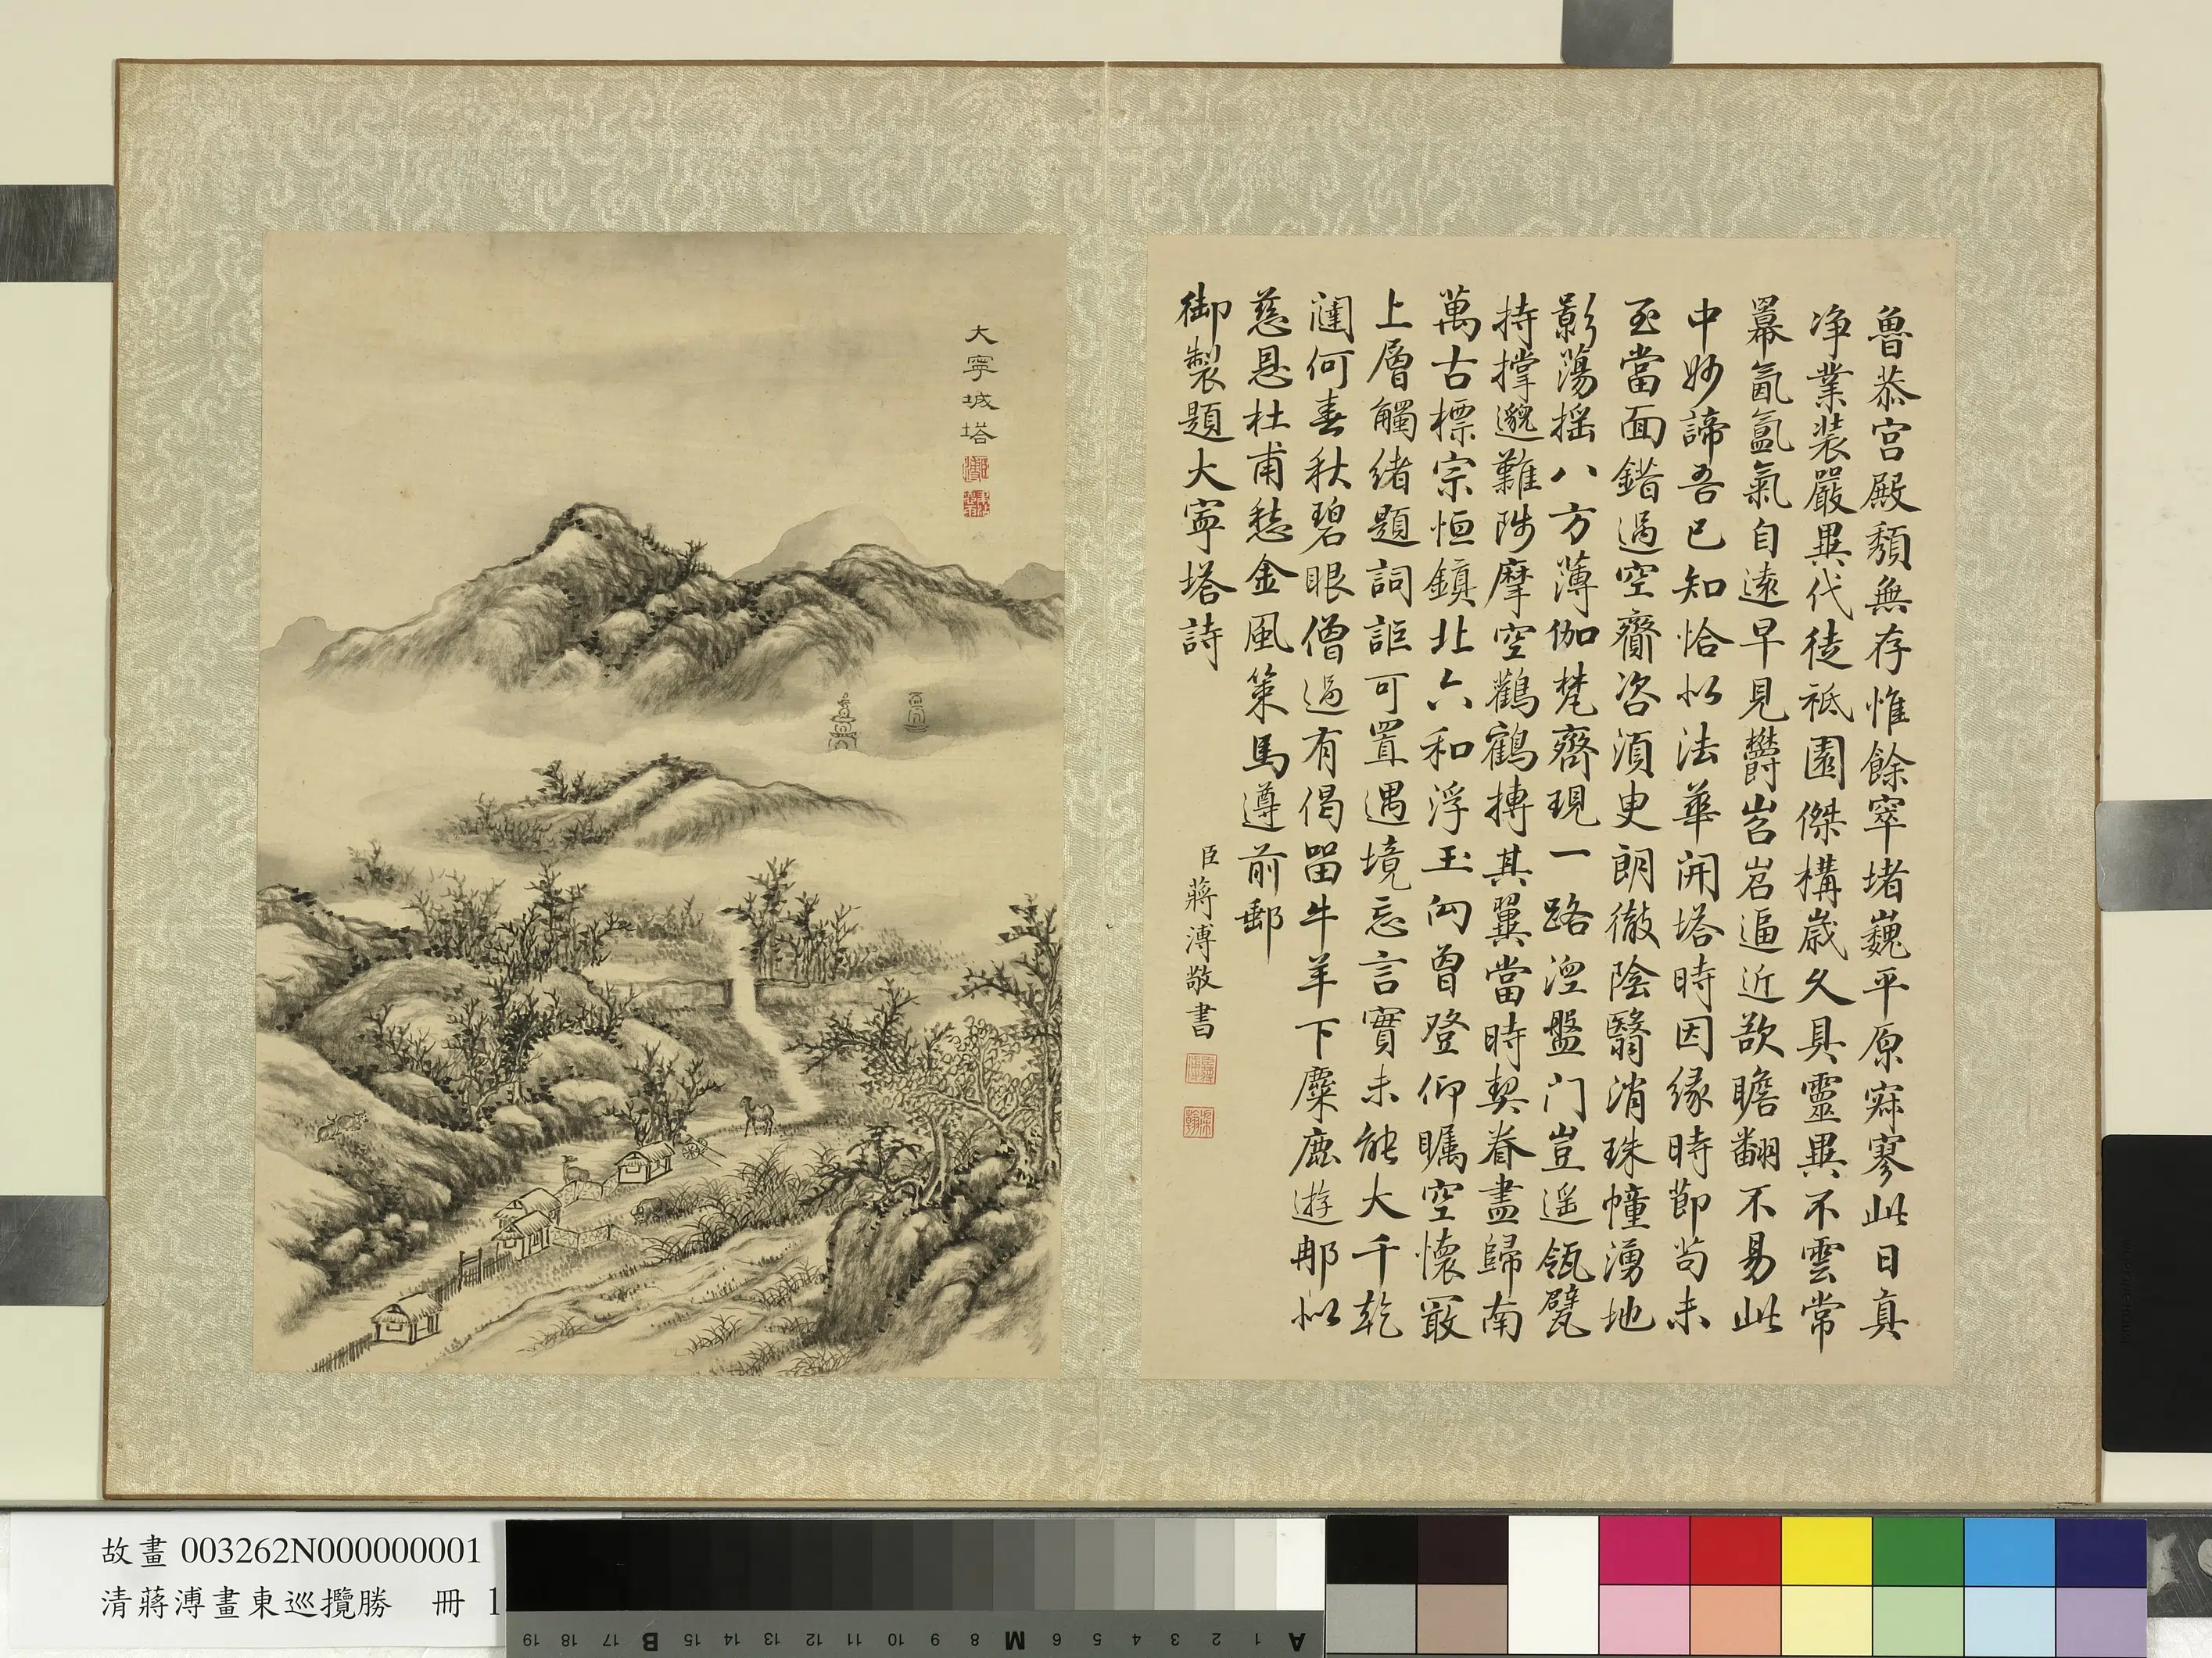 魯恭宮殿頹無存惟餘窣堵巍平原寂寥此日真
净業裝嚴異代徒祗園傑構歲久具靈異不雲常
羃氤氳氣自遠早見欝岧岧逼近欲瞻翻不易此
中妙諦吾已知恰似法華開塔時因緣時節苟未
至當面錯過空齎咨須臾朗徹陰翳消珠幢湧地
影蕩搖八方薄伽梵齊現一路涇盤门豈遥瓴甓
持撑邈難陟摩空鸛鶴摶其翼當時契眷盡歸南
萬古標宗恒鎮北六和浮玉向曾登仰瞩空懷最
上層觸緒題詞詎可置遇境忘言實未能大千乾
闥何春秋碧眼僧過有偈留牛羊下麋鹿遊那似
慈恩杜甫愁金風策馬遵前郵
御製題大寧塔詩
臣蔣溥敬書
大寧城塔
故畫 003262N000000001
清蔣溥畫東巡攬勝 冊 1
A 1 2 3 4 5 6 M 8 9 10 11 12 13 14 15 B 17 18 19